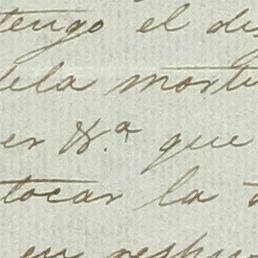 tengo el des
dela mortu
er V.ª que
tocar la t
en respu